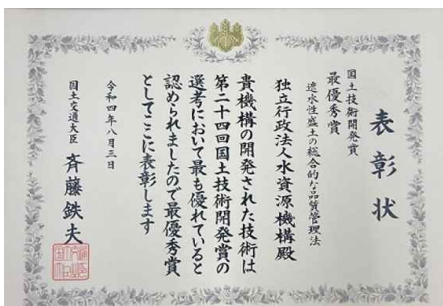 表彰状
国土技術開発賞
最優秀賞
遮水性盛土の総合的な品質管理法
独立行政法人水資源機構殿
貴機構の開発された技術は
第二十四回国土技術開発賞の
選考において最も優れていると
認められましたので最優秀賞
としてここに表彰します
令和四年八月三日
国土交通大臣 斉藤鉄夫